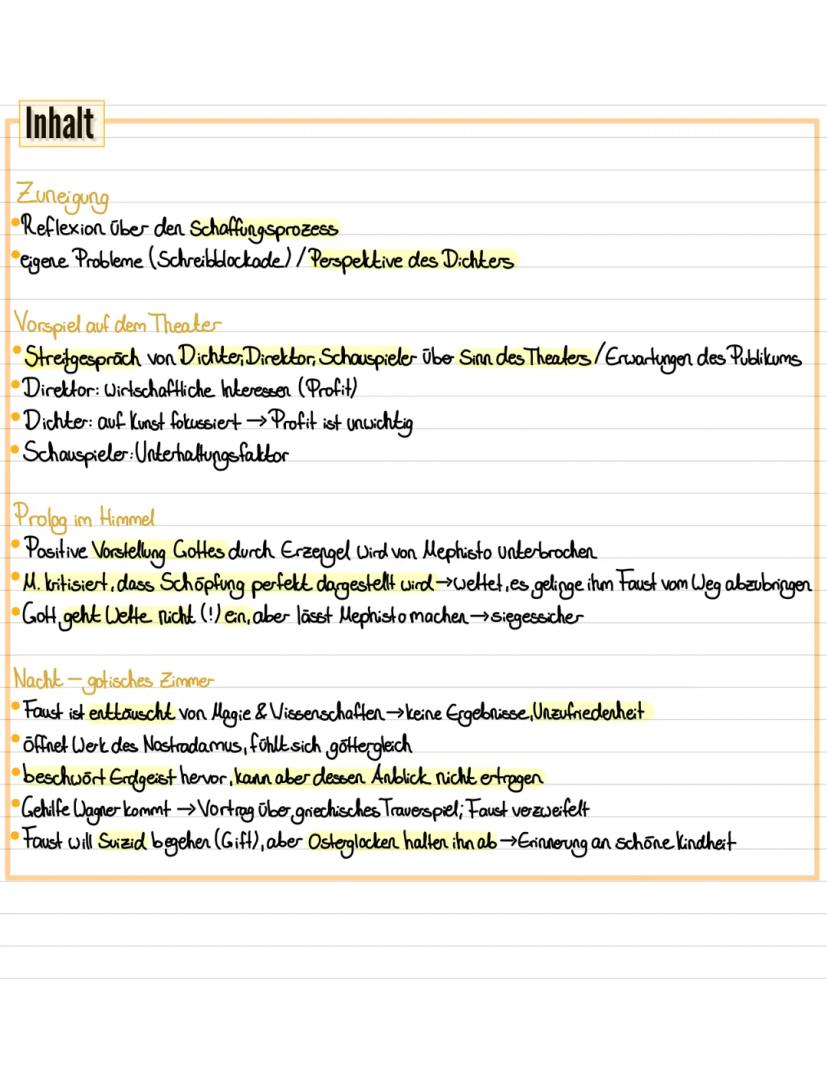 Inhalt
Zuneigung
•Reflexion über den Schaffungsprozess
•eigene Probleme (Schreibblockade) / Perspektive des Dichters
Vorspiel auf dem Theater
• Streitgespräch von Dichter, Direktor, Schauspieler über Sinn des Theaters / Erwartungen des Publikums
• Direktor: wirtschaftliche Interessen (Profit)
• Dichter: auf Kunst fokussiert → Profit ist unwichtig
• Schauspieler: Unterhaltungsfaktor
Prolog im Himmel
• Positive Vorstellung Gottes durch Erzengel wird von Mephisto unterbrochen
• M. kritisiert, dass Schöpfung perfekt dargestellt wird → wettet, es gelinge ihm Faust vom Weg abzubringen
• Gott geht Wette nicht (!) ein, aber lässt Mephisto machen → siegessicher
Nacht – gotisches Zimmer
• Faust ist enttäuscht von Magie & Wissenschaften → keine Ergebnisse, Unzufriedenheit
• öffnet Werk des Nostradamus, fühlt sich göttergleich
• beschwört Erdgeist hervor, kann aber dessen Anblick nicht ertragen
• Gehilfe Wagner kommt → Vortrag über griechisches Trauerspiel; Faust verzweifelt
• Faust will Suizid begehen (Gift), aber Osterglocken halten ihn ab → Erinnerung an schöne Kindheit